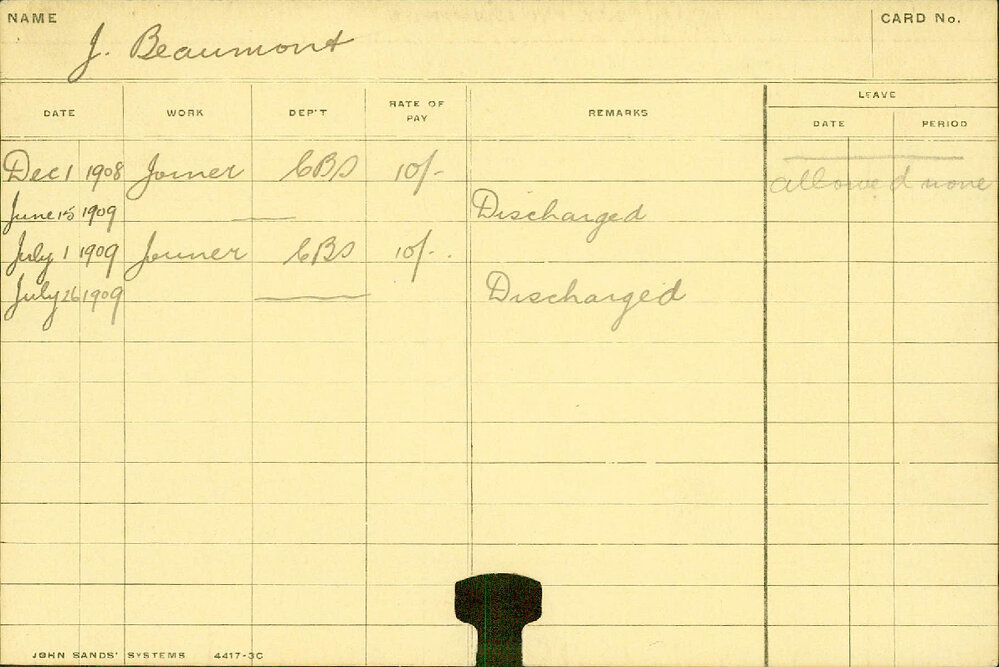 NAME J. Beaumont CARD No.
LEAVE
DATE WORK DEP'T RATE OF PAY REMARKS DATE PERIOD
Dec 1 1908 Joiner CBS 10/- allowed none
June 15 1909 — Discharged
July 1 1909 Joiner CBS 10/-
July 26 1909 — Discharged
JOHN SANDS' SYSTEMS 4417-3C